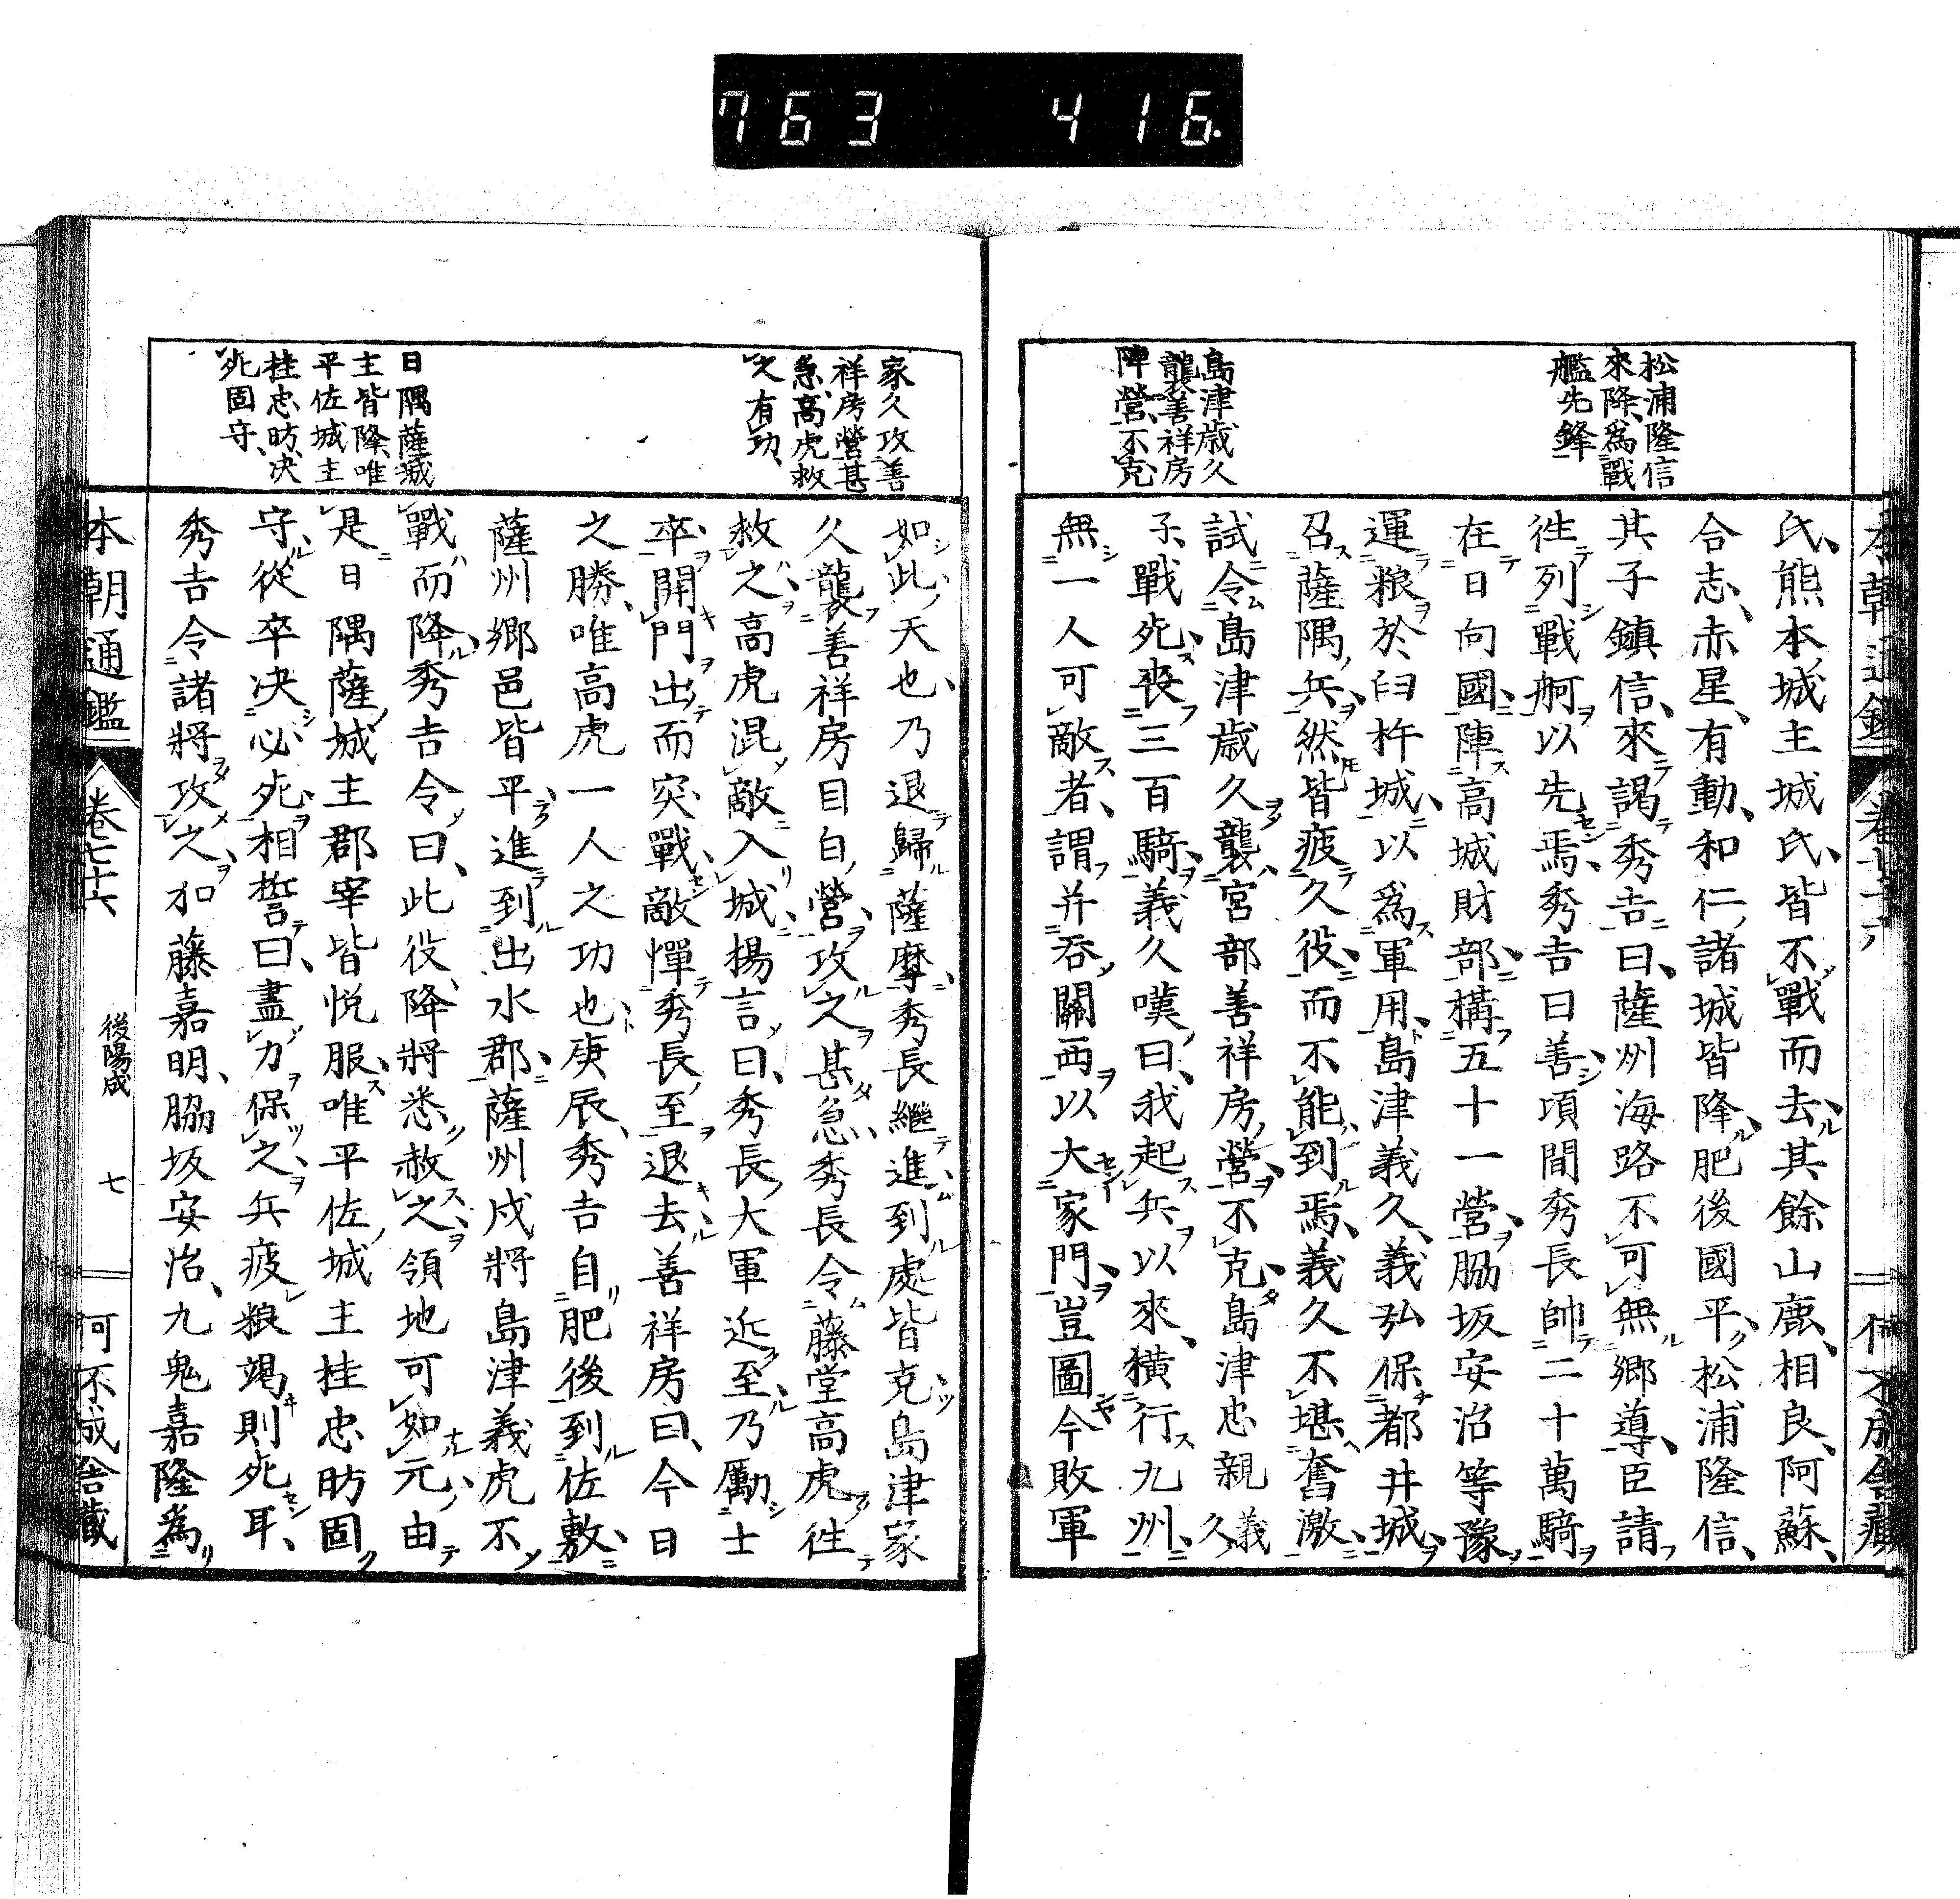 763 416
松浦隆信
來降、爲戰
艦先鋒
島津歳久
襲善祥房
陣營、不克
氏、熊本城主城氏、皆不戰而去、其餘山鹿、相良、阿蘇、
合志、赤星、有動、和仁、諸城皆降、肥後國平、松浦隆信、
其子鎮信、來謁秀吉曰、薩州海路不可無郷導、臣請
徃列戰舸以先焉、秀吉曰善、頃間秀長帥二十萬騎
在日向國、陣高城財部、構五十一營、脇坂安治等豫
運粮於臼杵城、以爲軍用、島津義久、義弘保都井城、
召薩隅兵、然皆疲久役、而不能到焉、義久不堪奮激、
試令島津歳久襲宮部善祥房營、不克、島津忠親義久
子、戰死、喪三百騎、義久嘆曰、我起兵以來、横行九州、
無一人可敵者、謂并吞關西以大家門、豈圖今敗軍
家久攻善
祥房營甚
急、高虎救
之有功、
日隅薩城
主皆降、唯
平佐城主
桂忠昉決
死固守、
如此、天也、乃退歸薩摩、秀長繼進到處皆克、島津家
久襲善祥房目白營、攻之甚急、秀長令藤堂高虎徃
救之、高虎混敵入城、揚言曰、秀長大軍近至、乃勵士
卒、開門出而突戰、敵憚秀長至退去、善祥房曰、今日
之勝、唯高虎一人之功也、庚辰、秀吉自肥後到佐敷、
薩州郷邑皆平、進到出水郡、薩州戍將島津義虎不
戰而降、秀吉令曰、此役、降將悉赦之、領地可如元、由
是日隅薩城主郡宰皆悦服、唯平佐城主桂忠昉固
守、從卒决必死、相誓曰、盡力保之、兵疲粮竭則死耳、
秀吉令諸將攻之、加藤嘉明、脇坂安治、九鬼嘉隆爲
本朝通鑑
卷七十六
後陽成
七